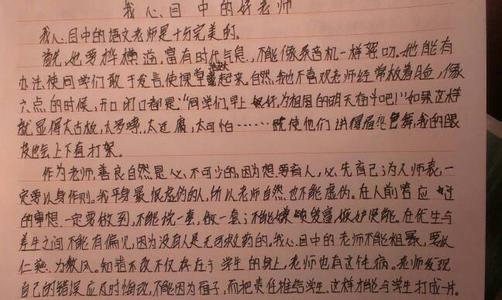 我心目中的好老师
我心目中的语文老师是十分完美的。
首先,她要样,富有时代气息,不能像录音机一样絮叨。她能有
办法使同学们敢于发言,使课堂起来。自然,我也不喜欢老师经常板着A面,像
六点的时候,开口闭口都是:“同学们早上好,为祖国的明天奋斗吧!”如果这样
就显得太古板,太罗嗦,太迂腐,太可怕……使他们讲得眉飞色舞,我的眼
皮也会上下直打架。
作为老师,善良自然是必不可少的,因为想要育人,必先自己为人师表,一
定要以身作则。我平身最恨虚伪的人,所以老师自然也不能虚伪。在人前答应过
的事想一定要做到,不能说一套,做一套;不能。在优生与
差生之间不能有偏见,因为没有人是无可救药的。我心目中的老师不能粗暴,要以
仁慈为教风。知错不改不仅存在于学生的身上,老师也有这传病。老师发现
自己的错误应及时悔改,不能因为面子,而把责任推给学生。这样才能与学生打成一片。